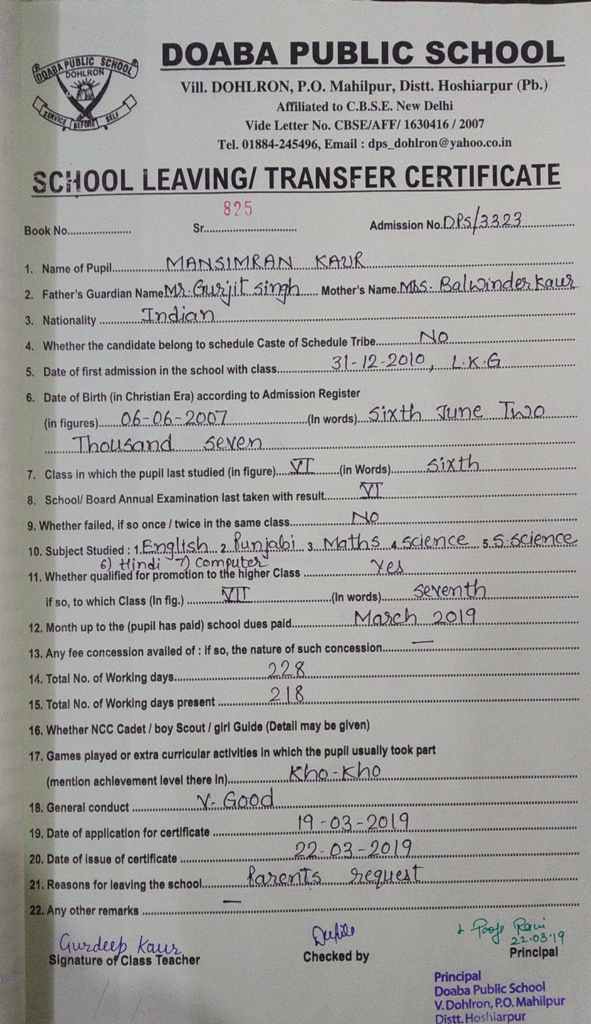 DOABA PUBLIC SCHOOL
DOHLRON
SERVICE BEFORE SELF
DOABA PUBLIC SCHOOL
Vill. DOHLRON, P.O. Mahilpur, Distt. Hoshiarpur (Pb.)
Affiliated to C.B.S.E. New Delhi
Vide Letter No. CBSE/AFF/ 1630416 / 2007
Tel. 01884-245496, Email : dps_dohlron@yahoo.co.in
SCHOOL LEAVING/ TRANSFER CERTIFICATE
Book No.................... Sr. 825 Admission No. DPS/3323
1. Name of Pupil MANSIMRAN KAUR
2. Father's Guardian Name Mr. Gurjit Singh Mother's Name Mrs. Balwinder Kaur
3. Nationality Indian
4. Whether the candidate belong to schedule Caste of Schedule Tribe No
5. Date of first admission in the school with class 31-12-2010, L.K.G
6. Date of Birth (in Christian Era) according to Admission Register
(in figures) 06-06-2007 (In words) Sixth June Two
Thousand Seven
7. Class in which the pupil last studied (in figure) VI (in Words) Sixth
8. School/ Board Annual Examination last taken with result VI
9. Whether failed, if so once / twice in the same class No
10. Subject Studied : 1. English 2. Punjabi 3. Maths 4. Science 5. S.Science
6) Hindi 7) Computer
11. Whether qualified for promotion to the higher Class Yes
if so, to which Class (In fig.) VII (In words) Seventh
12. Month up to the (pupil has paid) school dues paid March 2019
13. Any fee concession availed of : if so, the nature of such concession —
14. Total No. of Working days 228
15. Total No. of Working days present 218
16. Whether NCC Cadet / boy Scout / girl Guide (Detail may be given)
17. Games played or extra curricular activities in which the pupil usually took part
(mention achievement level there in) Kho-Kho
18. General conduct V. Good
19. Date of application for certificate 19-03-2019
20. Date of issue of certificate 22-03-2019
21. Reasons for leaving the school Parents request
22. Any other remarks —
Gurdeep Kaur Pooja Rani
22.03.19
Signature of Class Teacher Checked by Principal
Principal
Doaba Public School
V. Dohlron, P.O. Mahilpur
Distt. Hoshiarpur